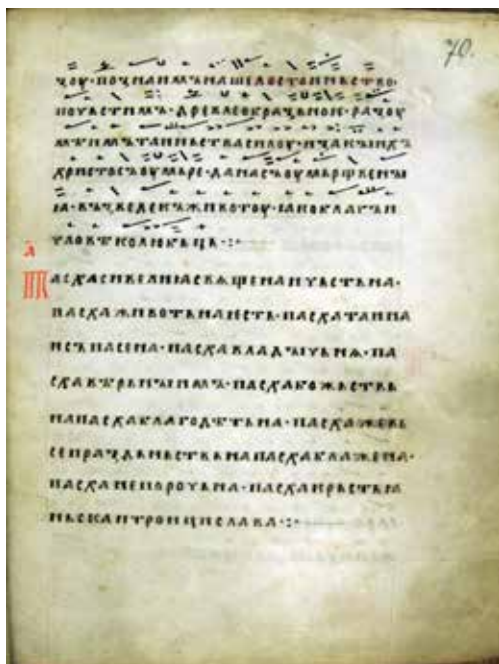 ꙁоу·поꙁнаимънашедостоиньство·
почьстимъ·древлеобраꙁьноѥ·раꙁоу
мѣимътаиньствасилоу·иꙁакыихъ
христосъоумьре·данасъоумьршвены
ꙗ·въꙁведеть животоу·ꙗкоблагыи
чловѣколюбьць·:·
Пасхасивелиꙗсвѧщенаичьстьна·
пасхаживотьнаѥсть·пасхатаина
исъпасена·пасхавладычьнѧ·па
схавѣрьныимъ·пасхабожьствь
напасхаблагодѣтьна·пасхажевь
сепраꙁдьньствьнапасхаблажена·
пасханепорочьна·пасхакрьстьꙗ
ньскаитроицислава·:·
70.